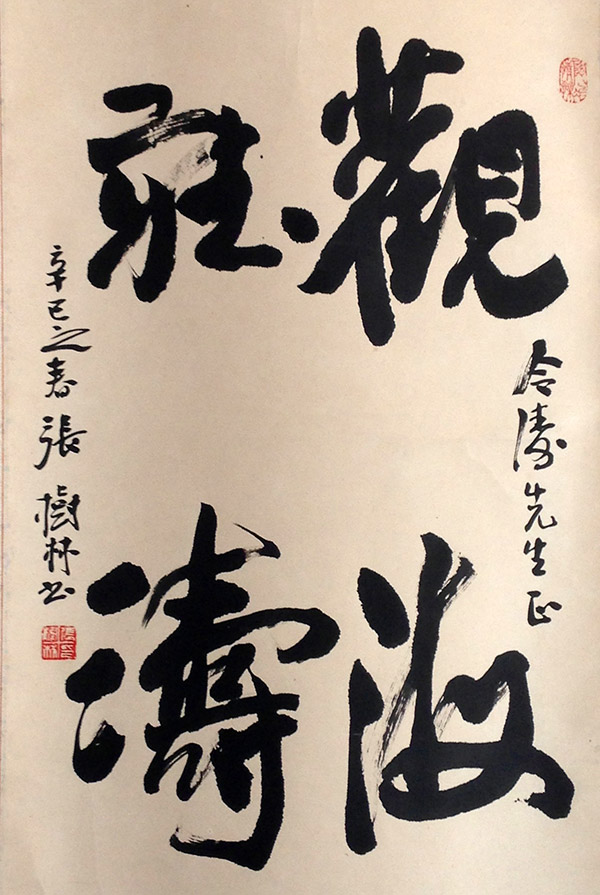 觀海
聽濤
令涛先生正
辛巳之春 張樹林书